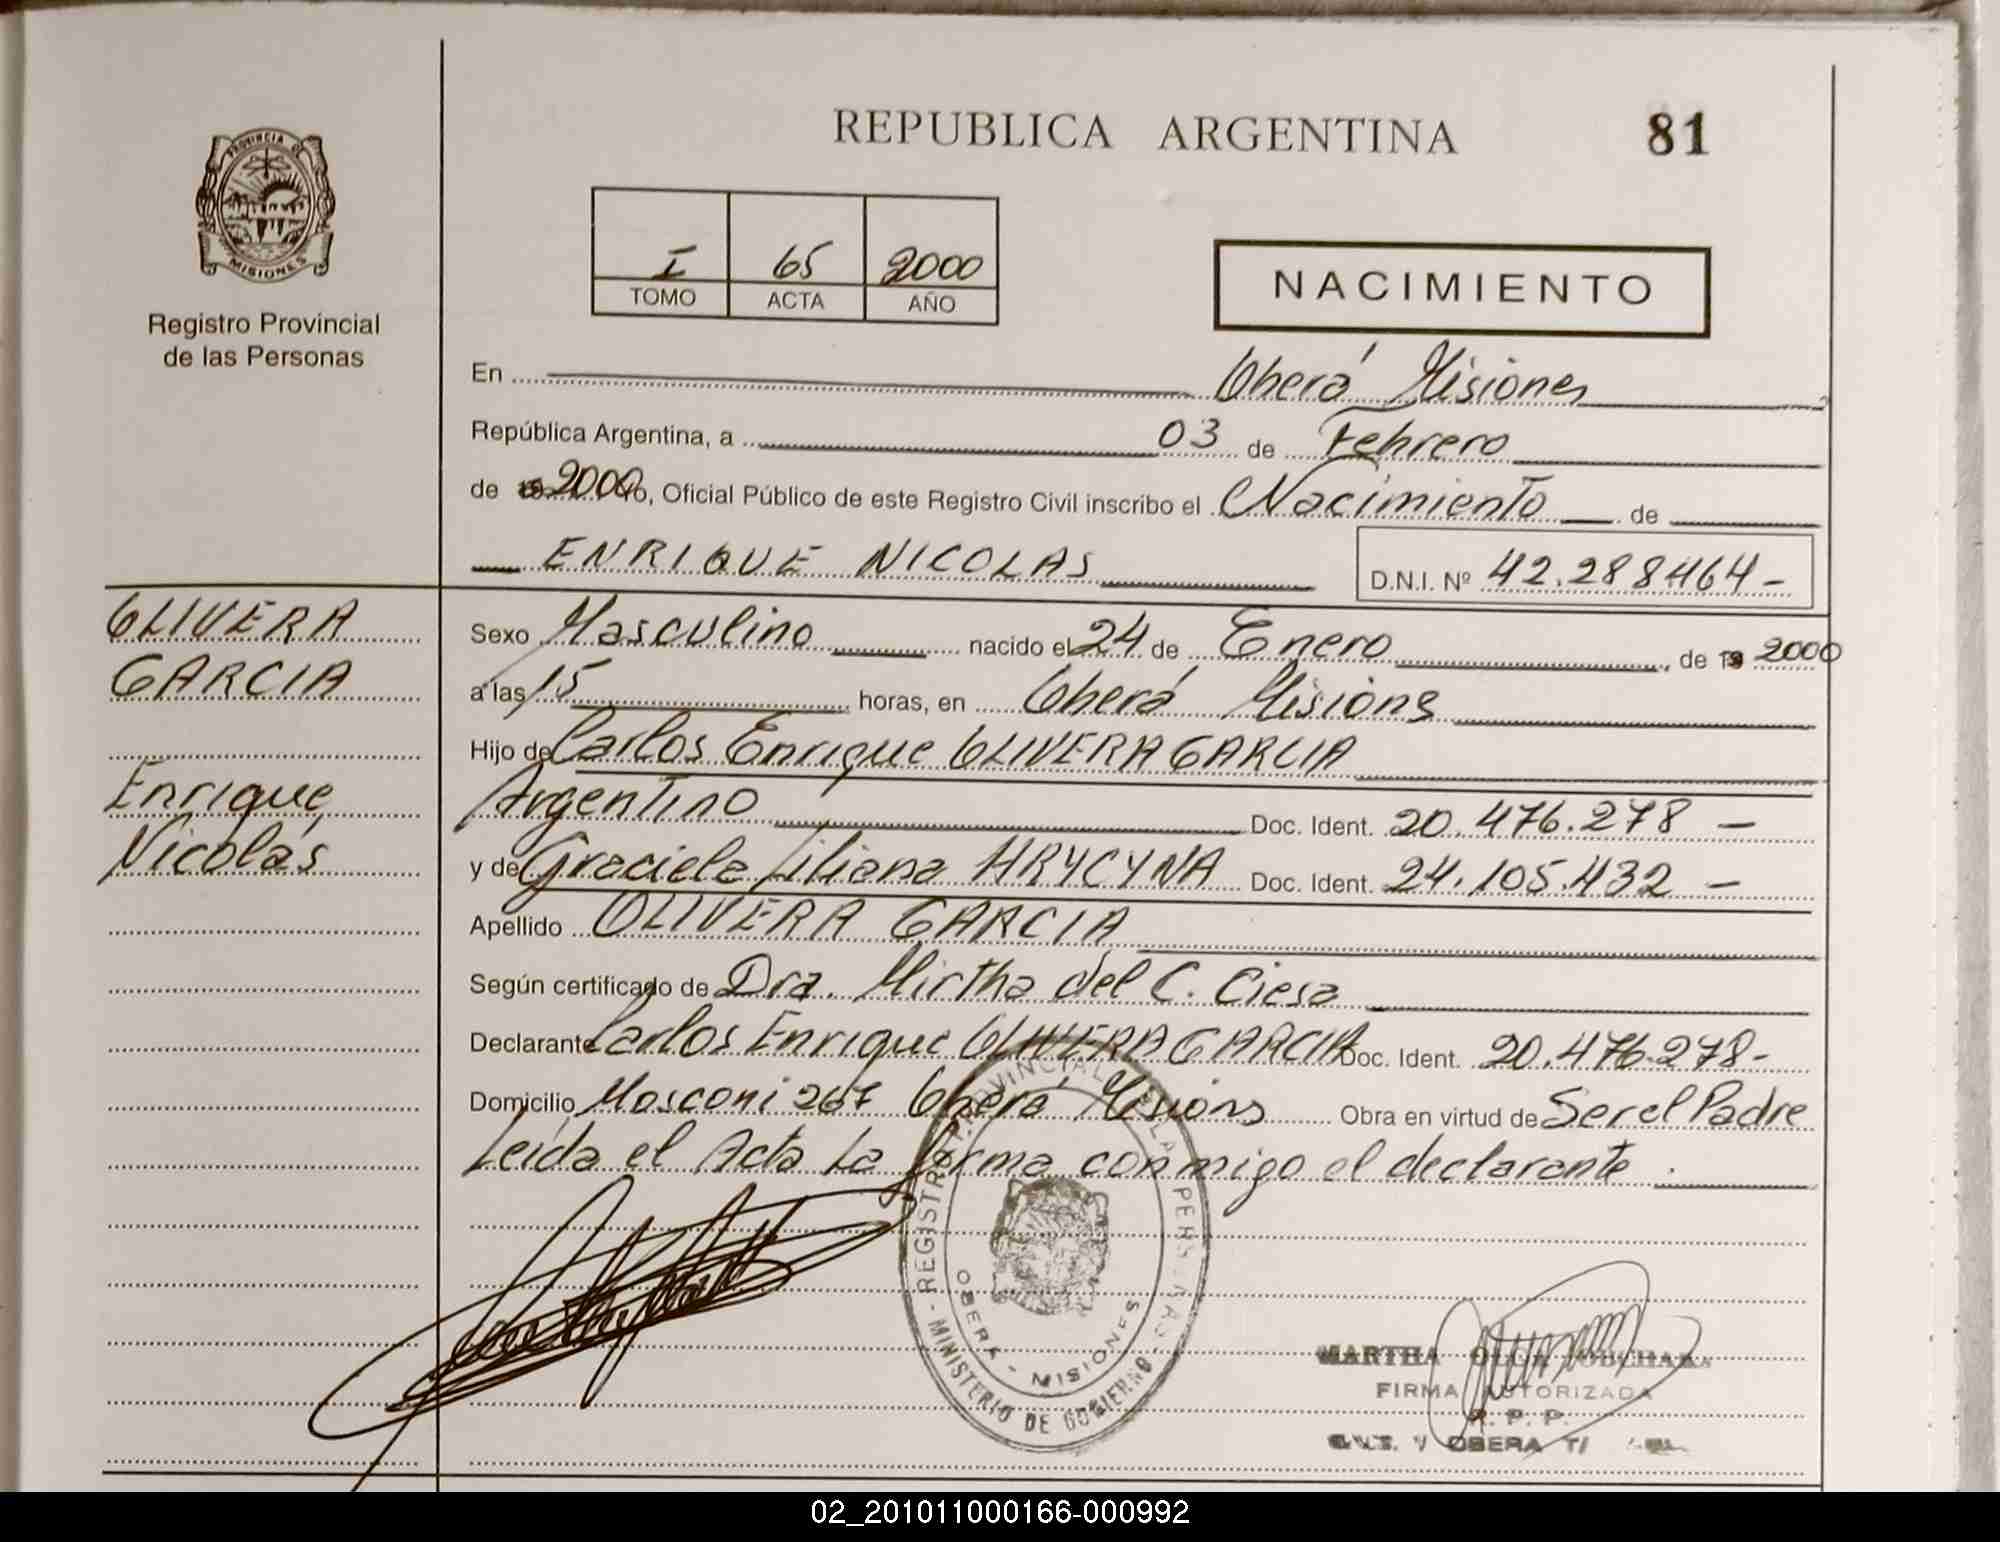 PROVINCIA DE
MISIONES
Registro Provincial
de las Personas
REPUBLICA ARGENTINA
81
I 65 2000
TOMO ACTA AÑO
NACIMIENTO
En Oberá Misiones
República Argentina, a 03 de Febrero
de 2000 Yo, Oficial Público de este Registro Civil inscribo el Nacimiento de
ENRIQUE NICOLAS D.N.I. Nº 42.288464-
OLIVERA
GARCIA
Enrique
Nicolás
Sexo Masculino nacido el 24 de Enero, de 19 2000
a las 15 horas, en Oberá Misions
Hijo de Carlos Enrique OLIVERA GARCIA
Argentino Doc. Ident. 20.476.278 -
y de Graciela Liliana HRYCYNA Doc. Ident. 24.105.432 -
Apellido OLIVERA GARCIA
Según certificado de Dra. Mirtha del C. Ciesa
Declarante Carlos Enrique OLIVERA GARCIA Doc. Ident. 20.476.278-
Domicilio Mosconi 267 Oberá Misions Obra en virtud de Ser el Padre
Leída el Acta la firma conmigo el declarante.
REGISTRO PROVINCIAL DE LAS PERSONAS
OBERA - MISIONES
- MINISTERIO DE GOBIERNO -
MARTHA OLGA
FIRMA AUTORIZADA
R. P. P.
OBERA
02_201011000166-000992